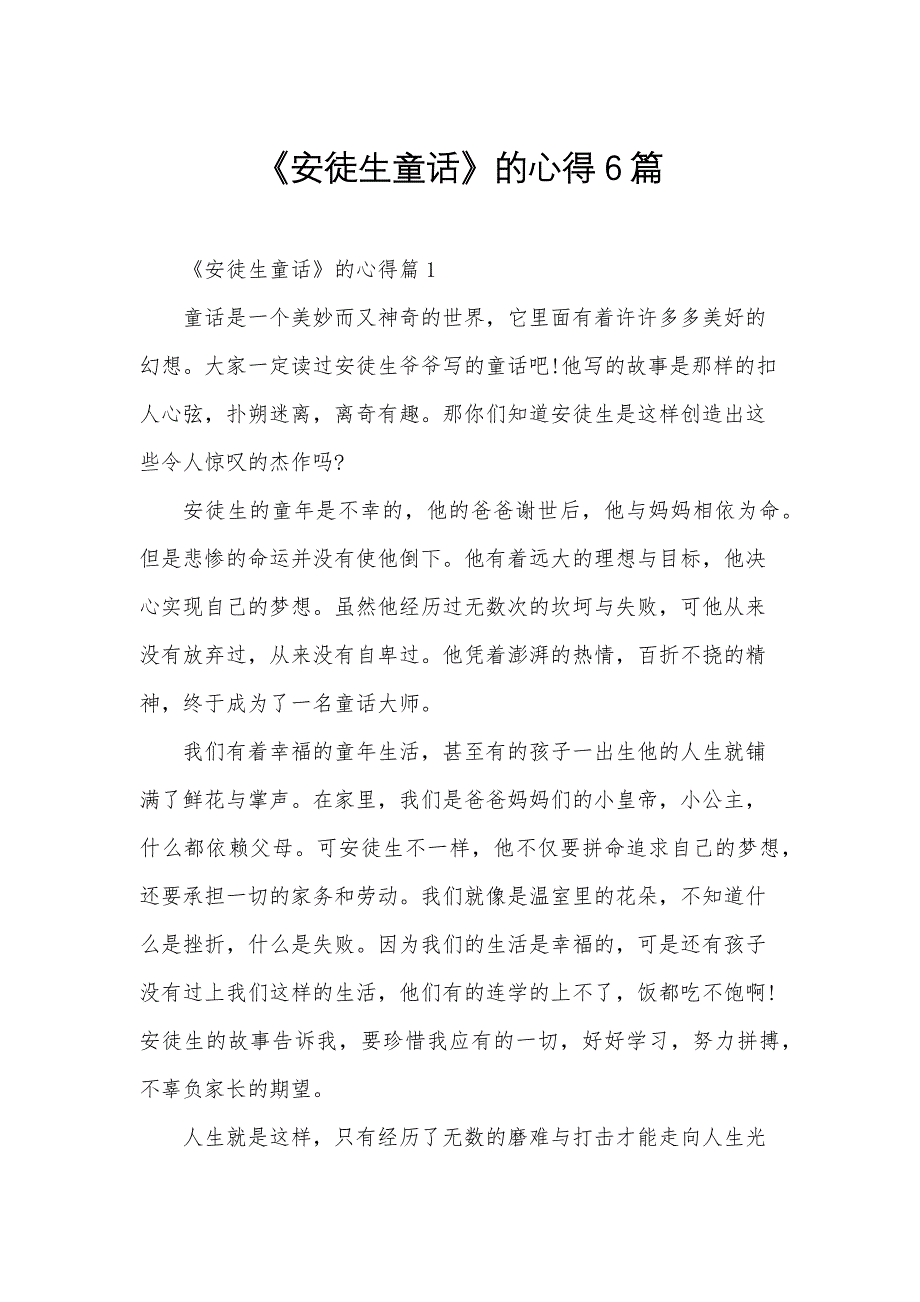 《安徒生童话》的心得6篇
《安徒生童话》的心得篇1
童话是一个美妙而又神奇的世界，它里面有着许许多多美好的
幻想。大家一定读过安徒生爷爷写的童话吧!他写的故事是那样的扣
人心弦，扑朔迷离，离奇有趣。那你们知道安徒生是这样创造出这
些令人惊叹的杰作吗?
安徒生的童年是不幸的，他的爸爸谢世后，他与妈妈相依为命。
但是悲惨的命运并没有使他倒下。他有着远大的理想与目标，他决
心实现自己的梦想。虽然他经历过无数次的坎坷与失败，可他从来
没有放弃过，从来没有自卑过。他凭着澎湃的热情，百折不挠的精
神，终于成为了一名童话大师。
我们有着幸福的童年生活，甚至有的孩子一出生他的人生就铺
满了鲜花与掌声。在家里，我们是爸爸妈妈们的小皇帝，小公主，
什么都依赖父母。可安徒生不一样，他不仅要拼命追求自己的梦想，
还要承担一切的家务和劳动。我们就像是温室里的花朵，不知道什
么是挫折，什么是失败。因为我们的生活是幸福的，可是还有孩子
没有过上我们这样的生活，他们有的连学的上不了，饭都吃不饱啊!
安徒生的故事告诉我，要珍惜我应有的一切，好好学习，努力拼搏，
不辜负家长的期望。
人生就是这样，只有经历了无数的磨难与打击才能走向人生光